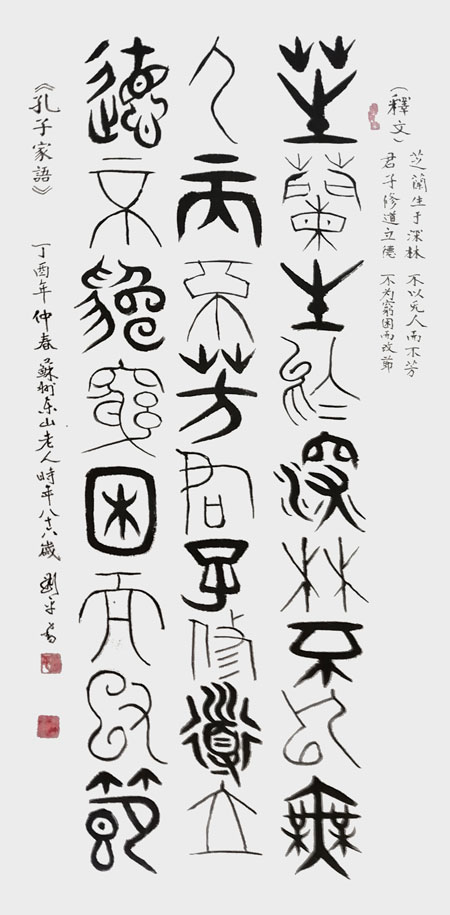 (釋文)
芝蘭生于深林 不以无人而不芳
君子修道立德 不为窮困而改節
芝蘭生於深林不以無
人而不芳君子修道立
德不為窮困而改節
《孔子家語》 丁酉年仲春 蘇州东山老人時年八十八歲